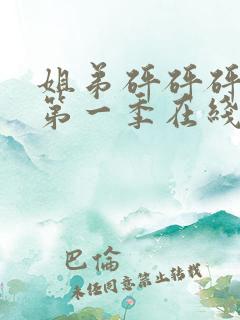 姐弟砰砰砰
第一季在线
巴倫
未经同意禁止转载